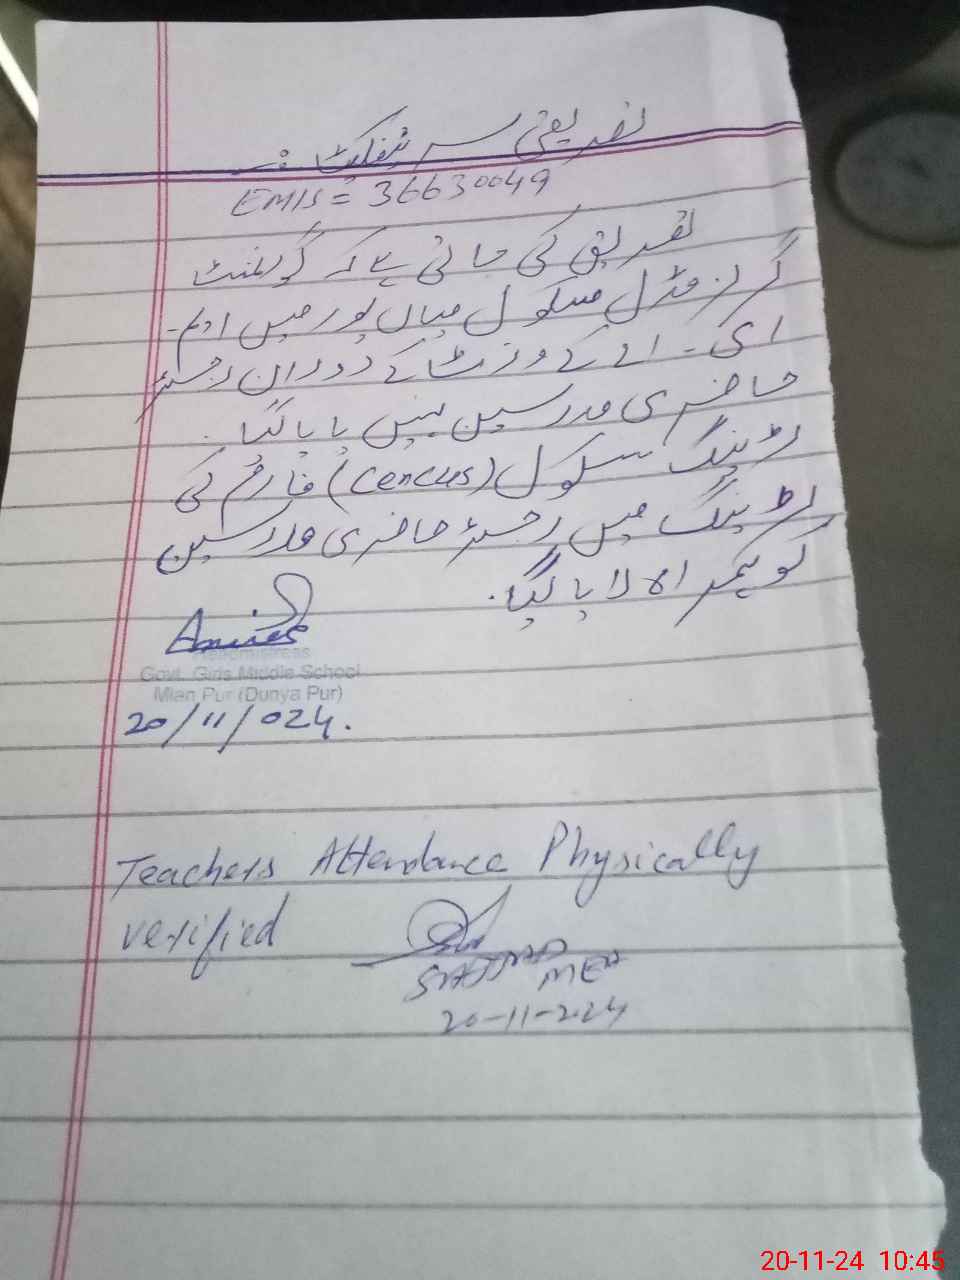 تصدیقی سرٹیفکیٹ
EMIS = 36630049
تصدیق کی جاتی ہے کہ گورنمنٹ
گرلز مڈل سکول میاں پور میں ایم۔
ای۔ اے کے وزٹ کے دوران رجسٹر
حاضری مدرسین نہیں پایا گیا۔
سکول (cencus) فارم کی
میں رجسٹر حاضری مدرسین
کو ہمراہ لایا گیا۔
Headmistress
Govt. Girls Middle School
Mian Pur (Dunya Pur)
20/11/024.
Teachers Attendance Physically
verified
SAJJAD
MEA
20-11-2024
20-11-24 10:45